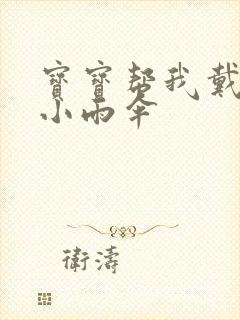 寶寶帮我戴
小雨伞
衛濤